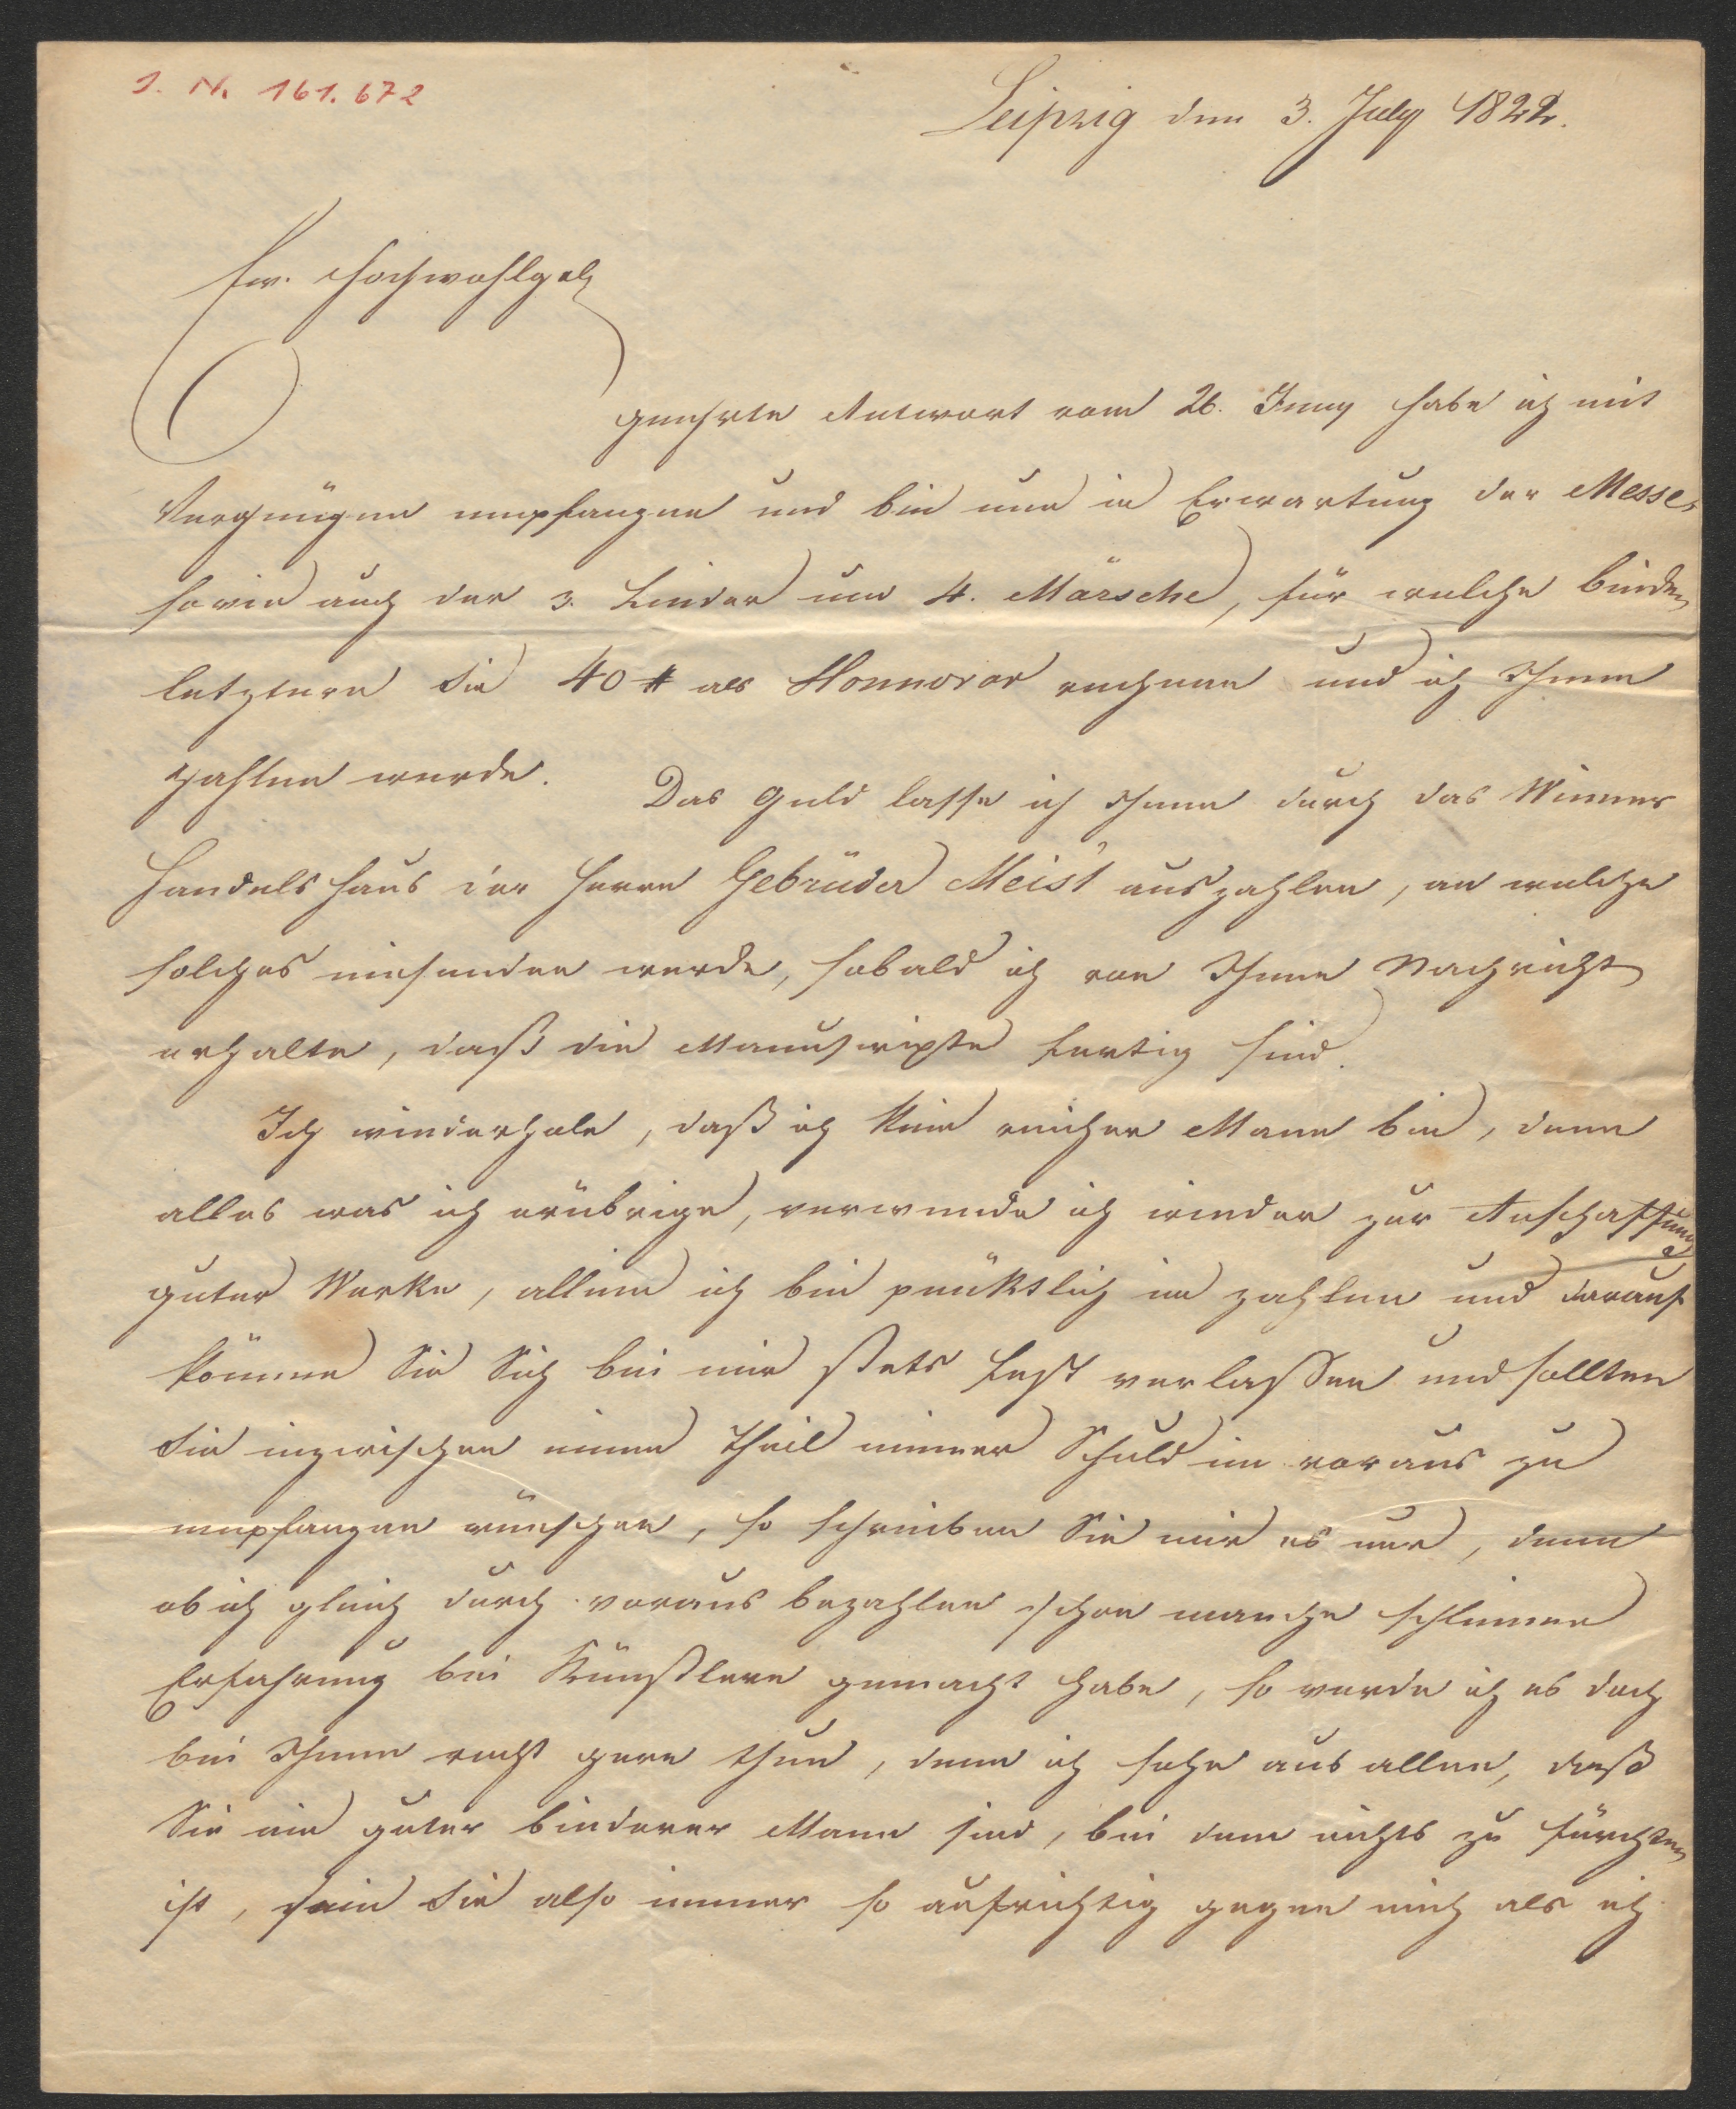 J. N. 161.672
Leipzig den 3. July 1822.
Ew. Hochwohlgeb
geehrte Antwort vom 26. Juny habe ich mit
Vergnügen empfangen und bin nun in Erwartung der Messe,
sowie auch der 3. Lieder und 4. Märsche, für welche beiden
letztern Sie 40 # als Honnorar rechnen und ich Ihnen
zahlen werde. Das Geld lasse ich Ihnen durch das Wiener
Handelshaus der Herrn Gebrüder Meisl auszahlen, an welche
solches einsenden werde, sobald ich von Ihnen Nachricht
erhalte, daß die Manuscripte fertig sind.
Ich wiederhole, daß ich kein reicher Mann bin, denn
alles was ich erübrige, verwende ich wieder zur Anschaffung
guter Werke, allein ich bin pünktlich im zahlen und darauf
können Sie Sich bei mir stets fest verlassen und sollten
Sie inzwischen einen Theil meiner Schuld im voraus zu
empfangen wünschen, so schreiben Sie mir es nur, denn
ob ich gleich durch voraus bezahlen schon manche schlimme
Erfahrung bei Künstlern gemacht habe, so werde ich es doch
bei Ihnen recht gern thun, denn ich sehe aus allen, daß
Sie ein guter biederer Mann sind, bei dem nichts zu fürchten
ist, sein Sie also immer so aufrichtig gegen mich als ich